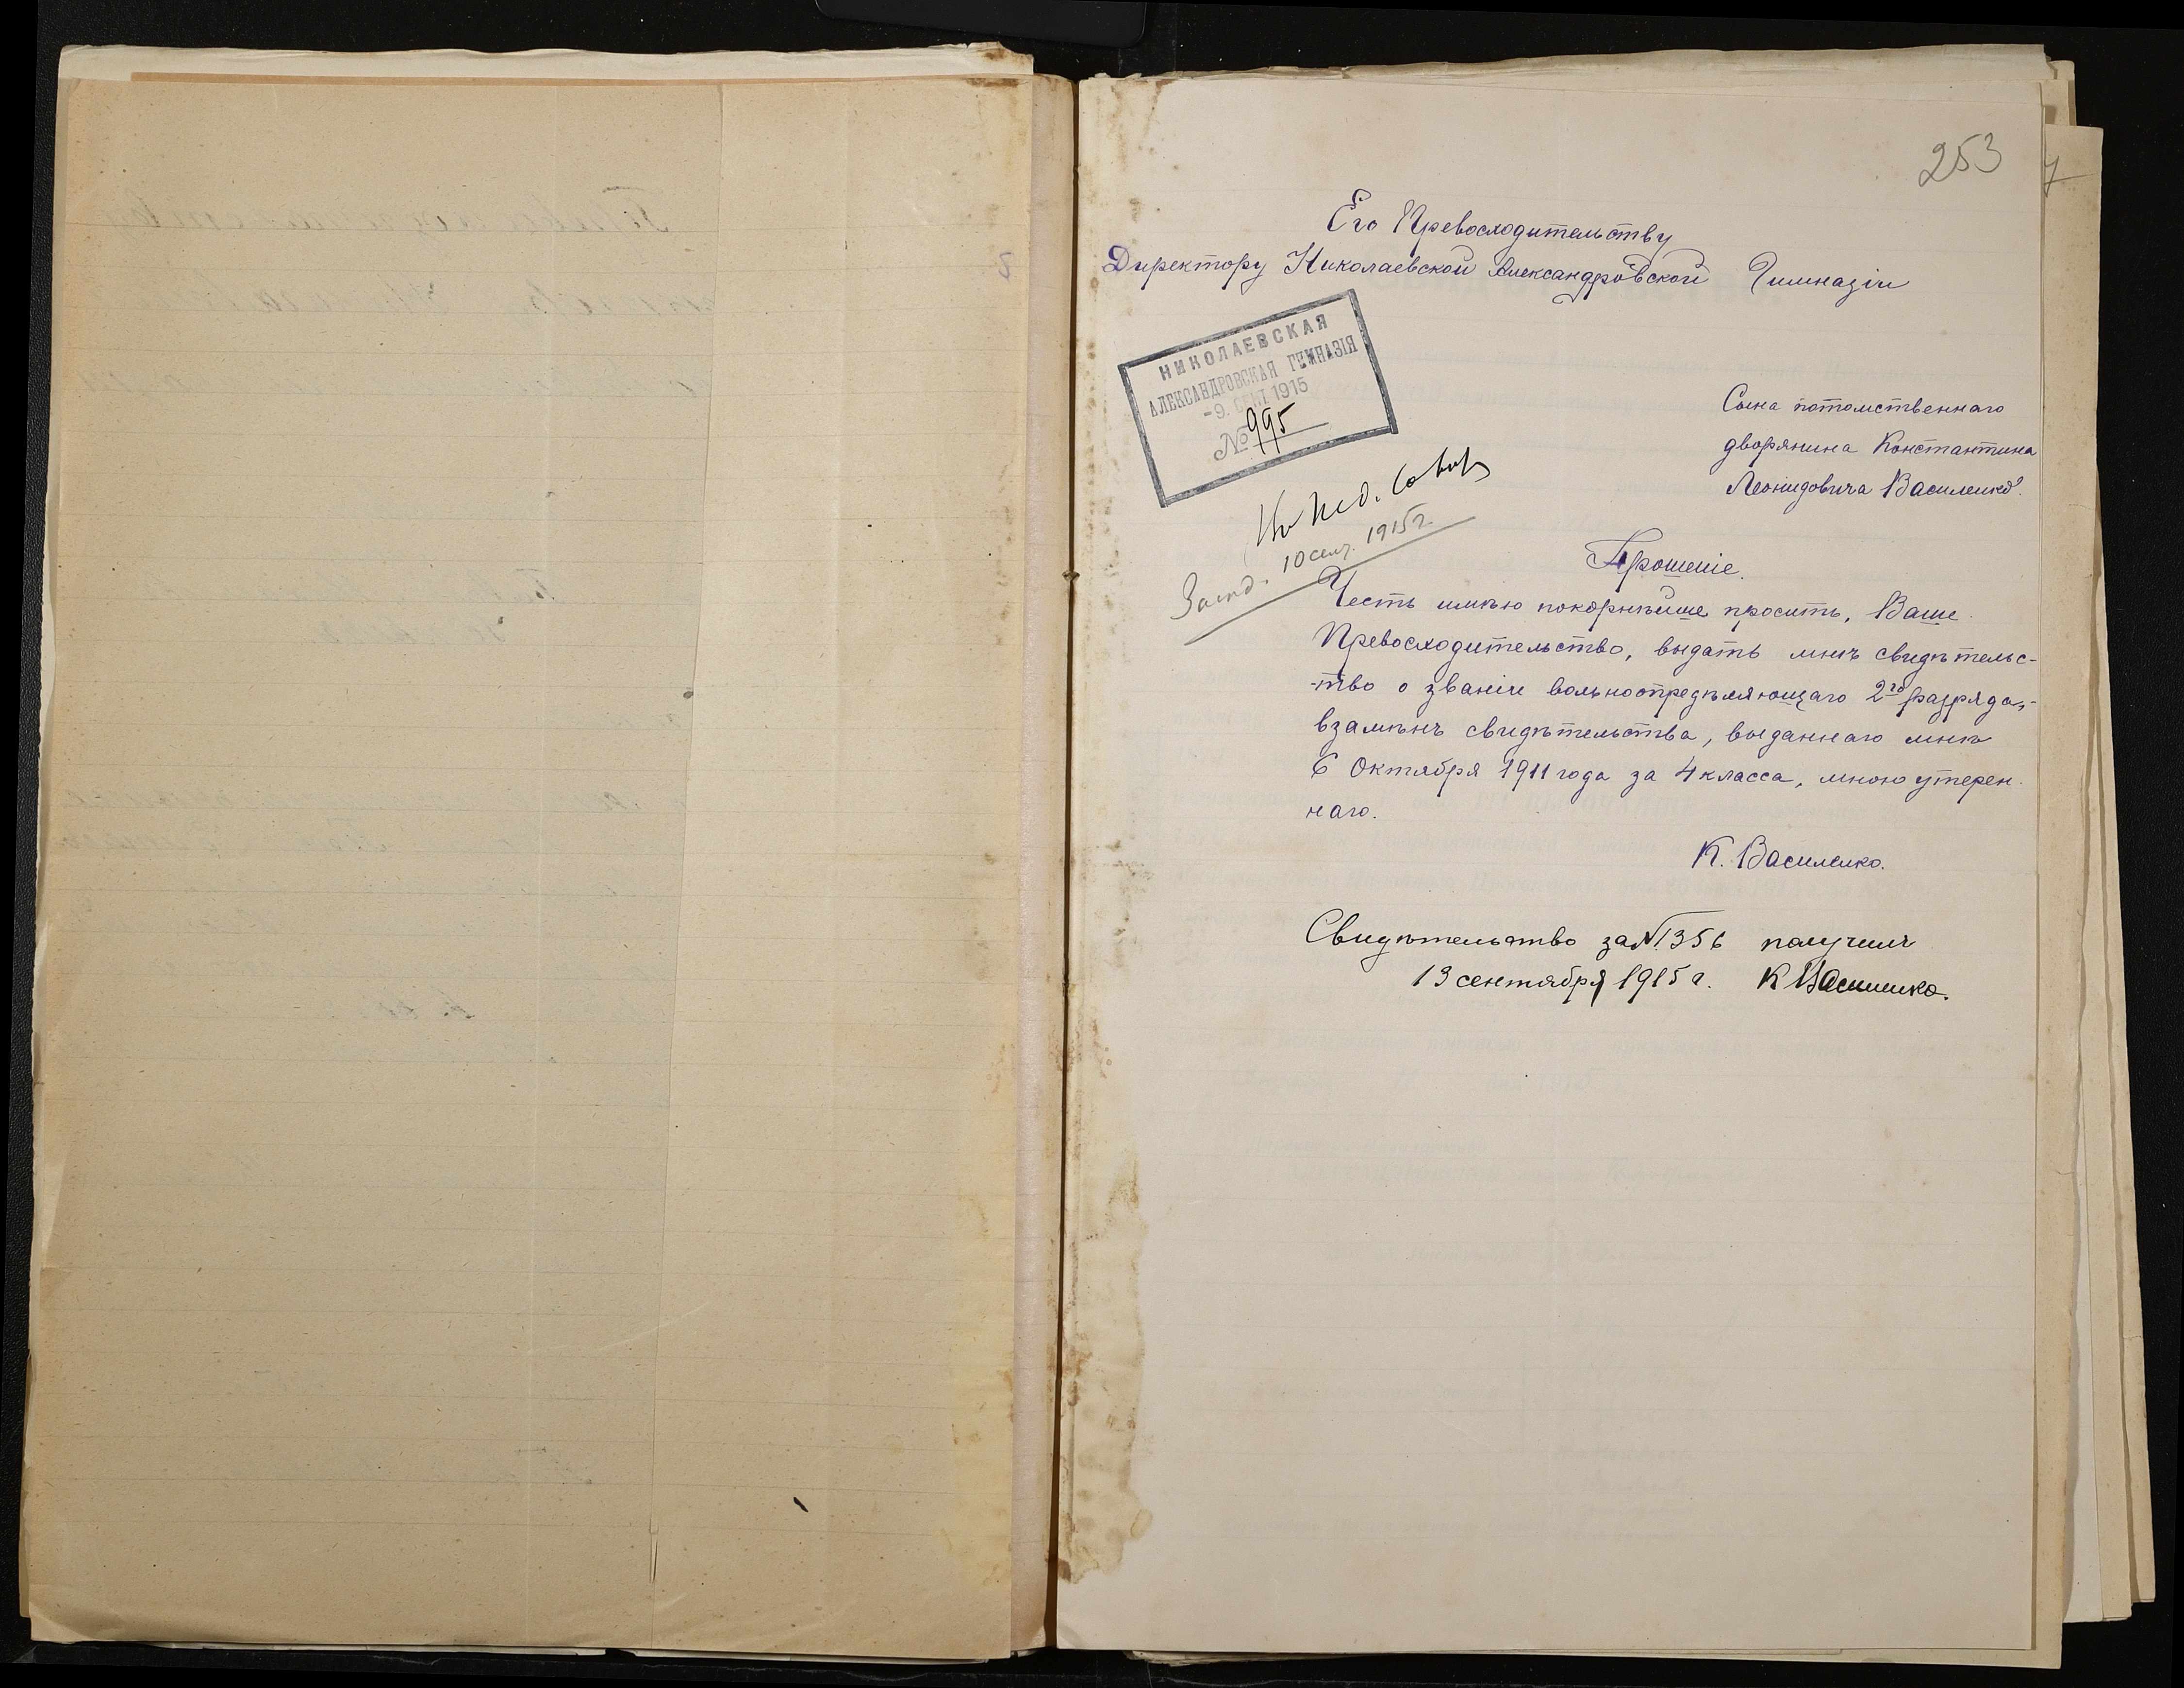 253
Его Превосходительству
Директору Николаевской Александровской Гимназіи
НИКОЛАЕВСКАЯ
АЛЕКСАНДРОВСКАЯ ГИМНАЗІЯ
-9. СЕН 1915
№ 995
Сына потомственнаго
дворянина Константина
Леонидовича Василенко.
Пед. Совѣт
10 сент. 1915 г.
Прошеніе.
Честь имѣю покорнѣйше просить, Ваше
Превосходительство, выдать мнѣ свидѣтельс-
-тво о званіи вольноопредѣляющаго 2го разряда,-
взамѣнъ свидѣтельства, выданнаго мнѣ
6 Октября 1911 года за 4 класса, мною утерен-
наго.
К. Василенко.
Свидѣтельство за № 1356 получилъ
13 сентября 1915 г. К Василенко.